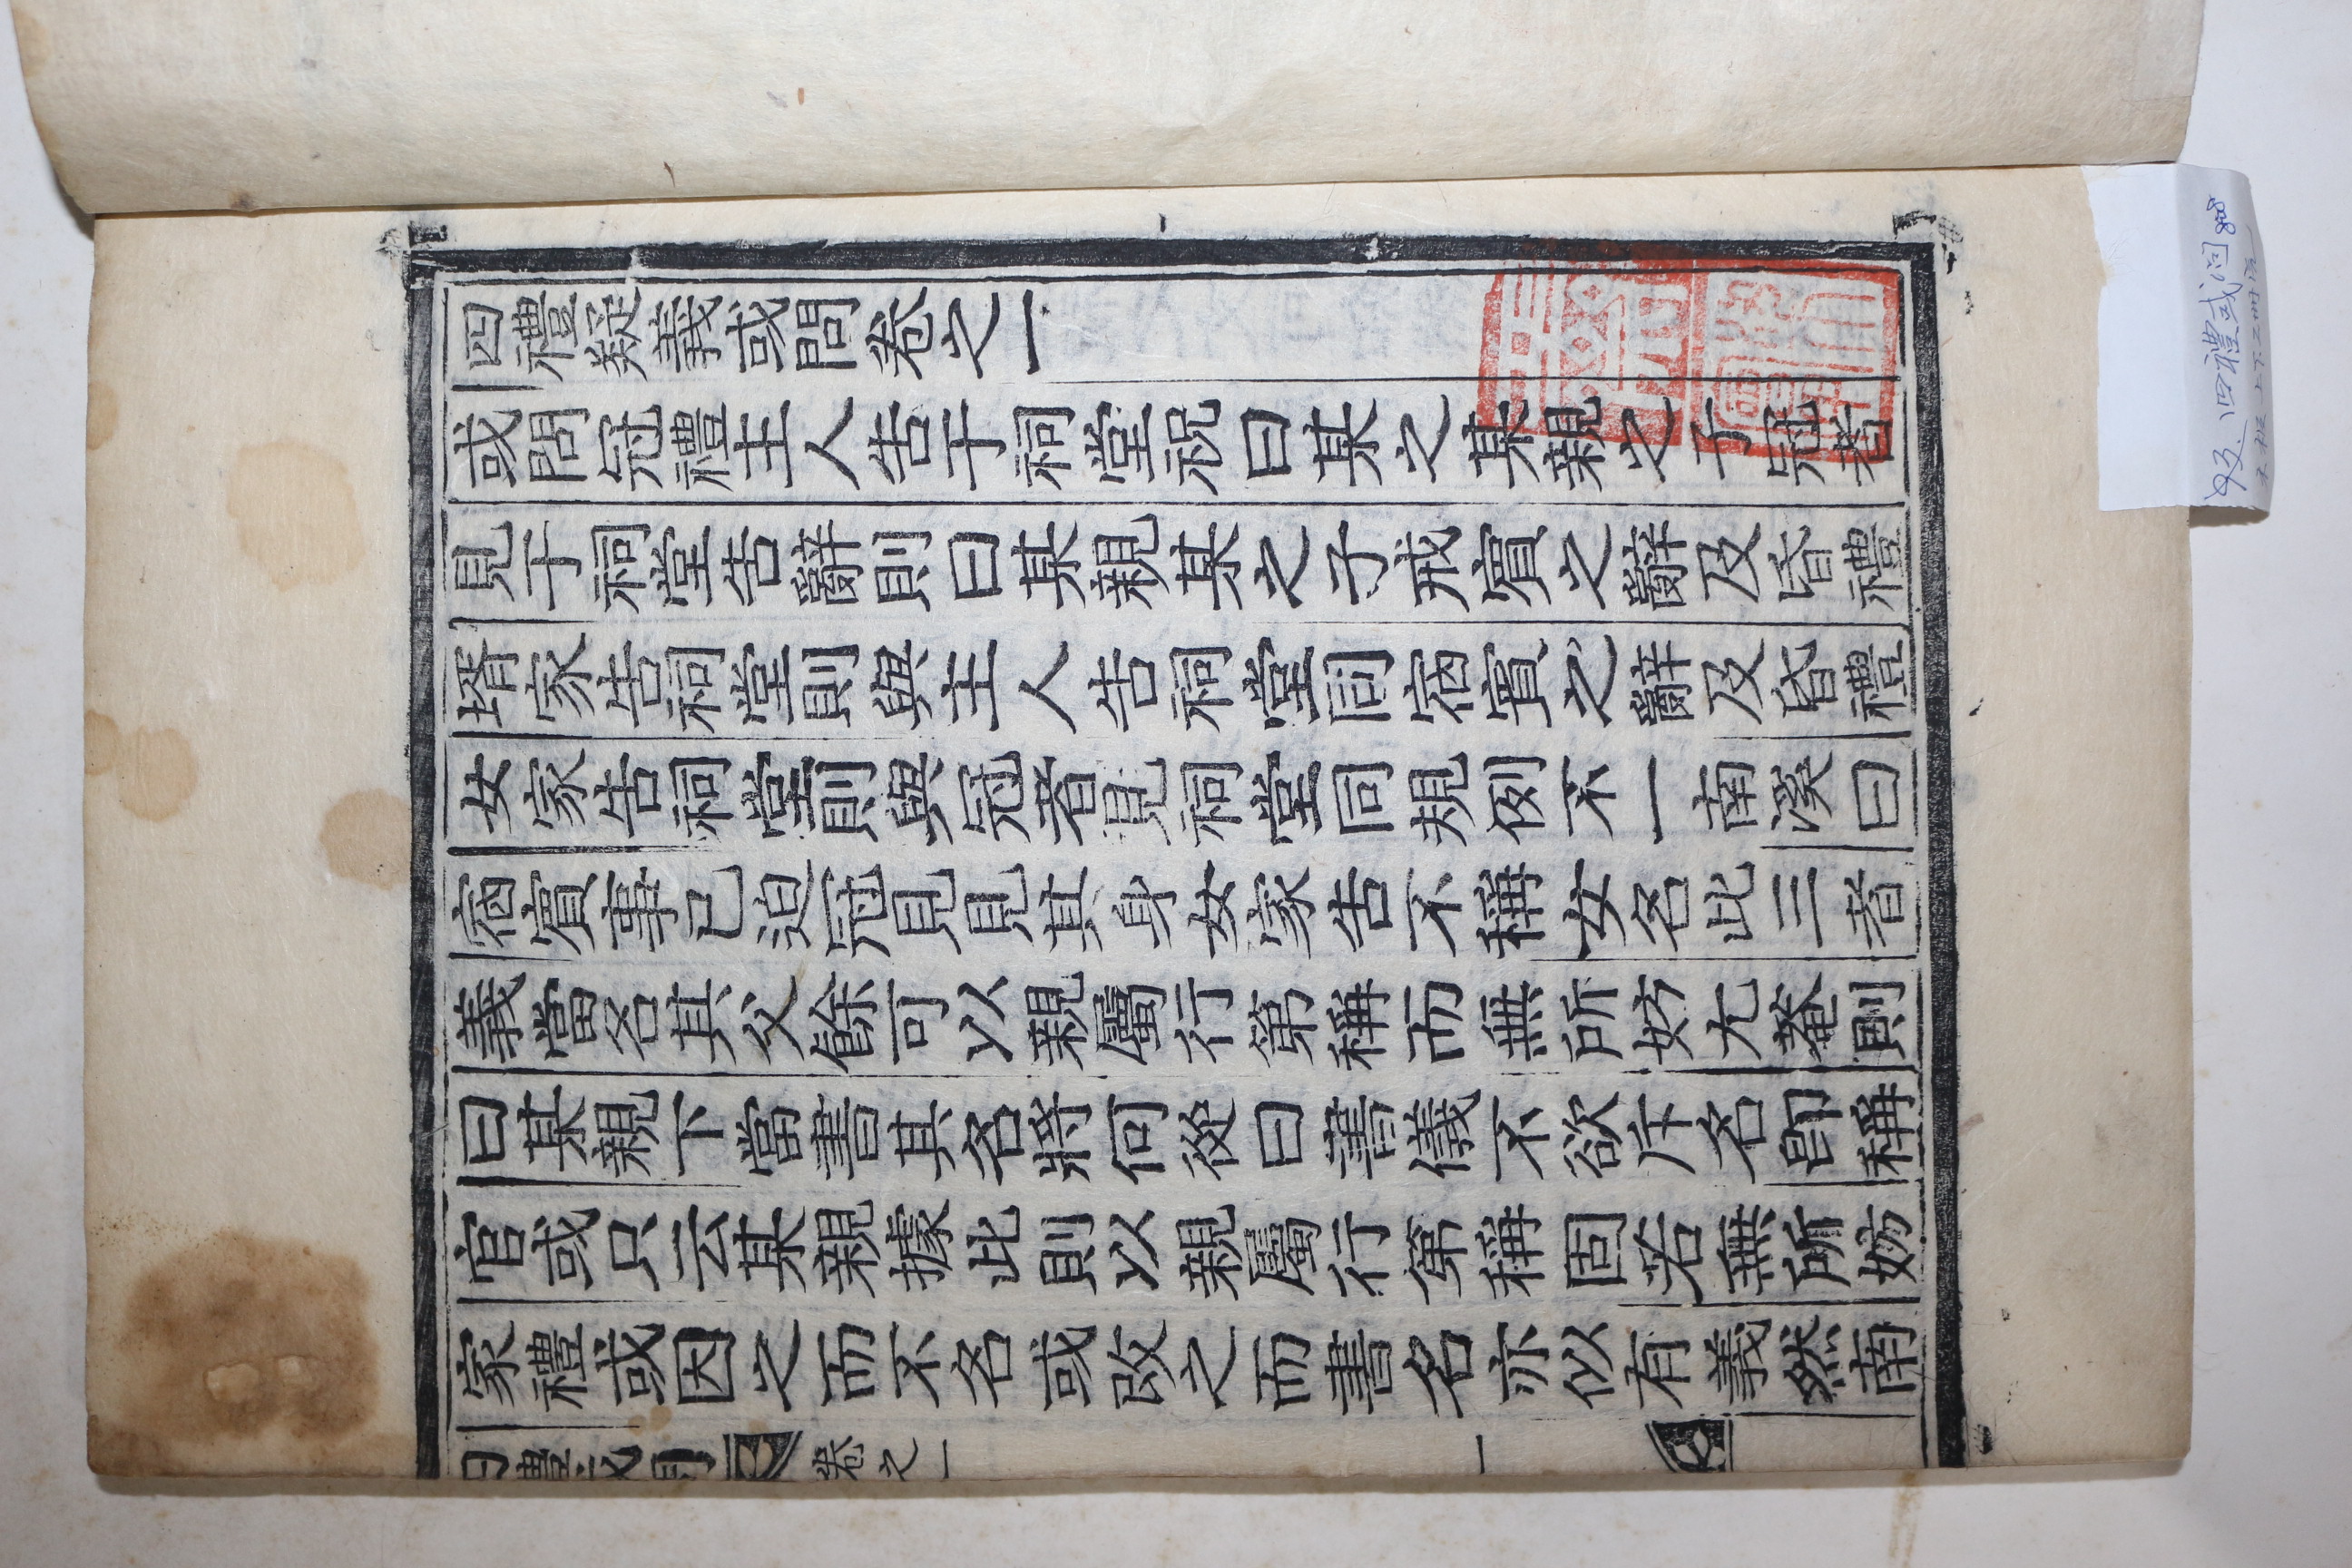 四禮疑義或問卷之一
或問冠禮主人告于祠堂祝曰某之某親之子冠者
見于祠堂告辭則曰某親某之子戒賓之辭及昏禮
壻家告祠堂則與主人告祠堂同宿賓之辭及昏禮
女家告祠堂則與冠者見祠堂同規例不一南溪曰
宿賓事已迫冠見見其身女家告不稱女名此三者
義當名其父餘可以親屬行第稱而無所妨尤菴則
曰某親下當書其名將何從曰書儀不欲斥名卽稱
官或只云某親據此則以親屬行第稱固若無所妨
家禮或因之而不名或改之而書名亦似有義然南
四禮或問 卷之一 一
四禮或問